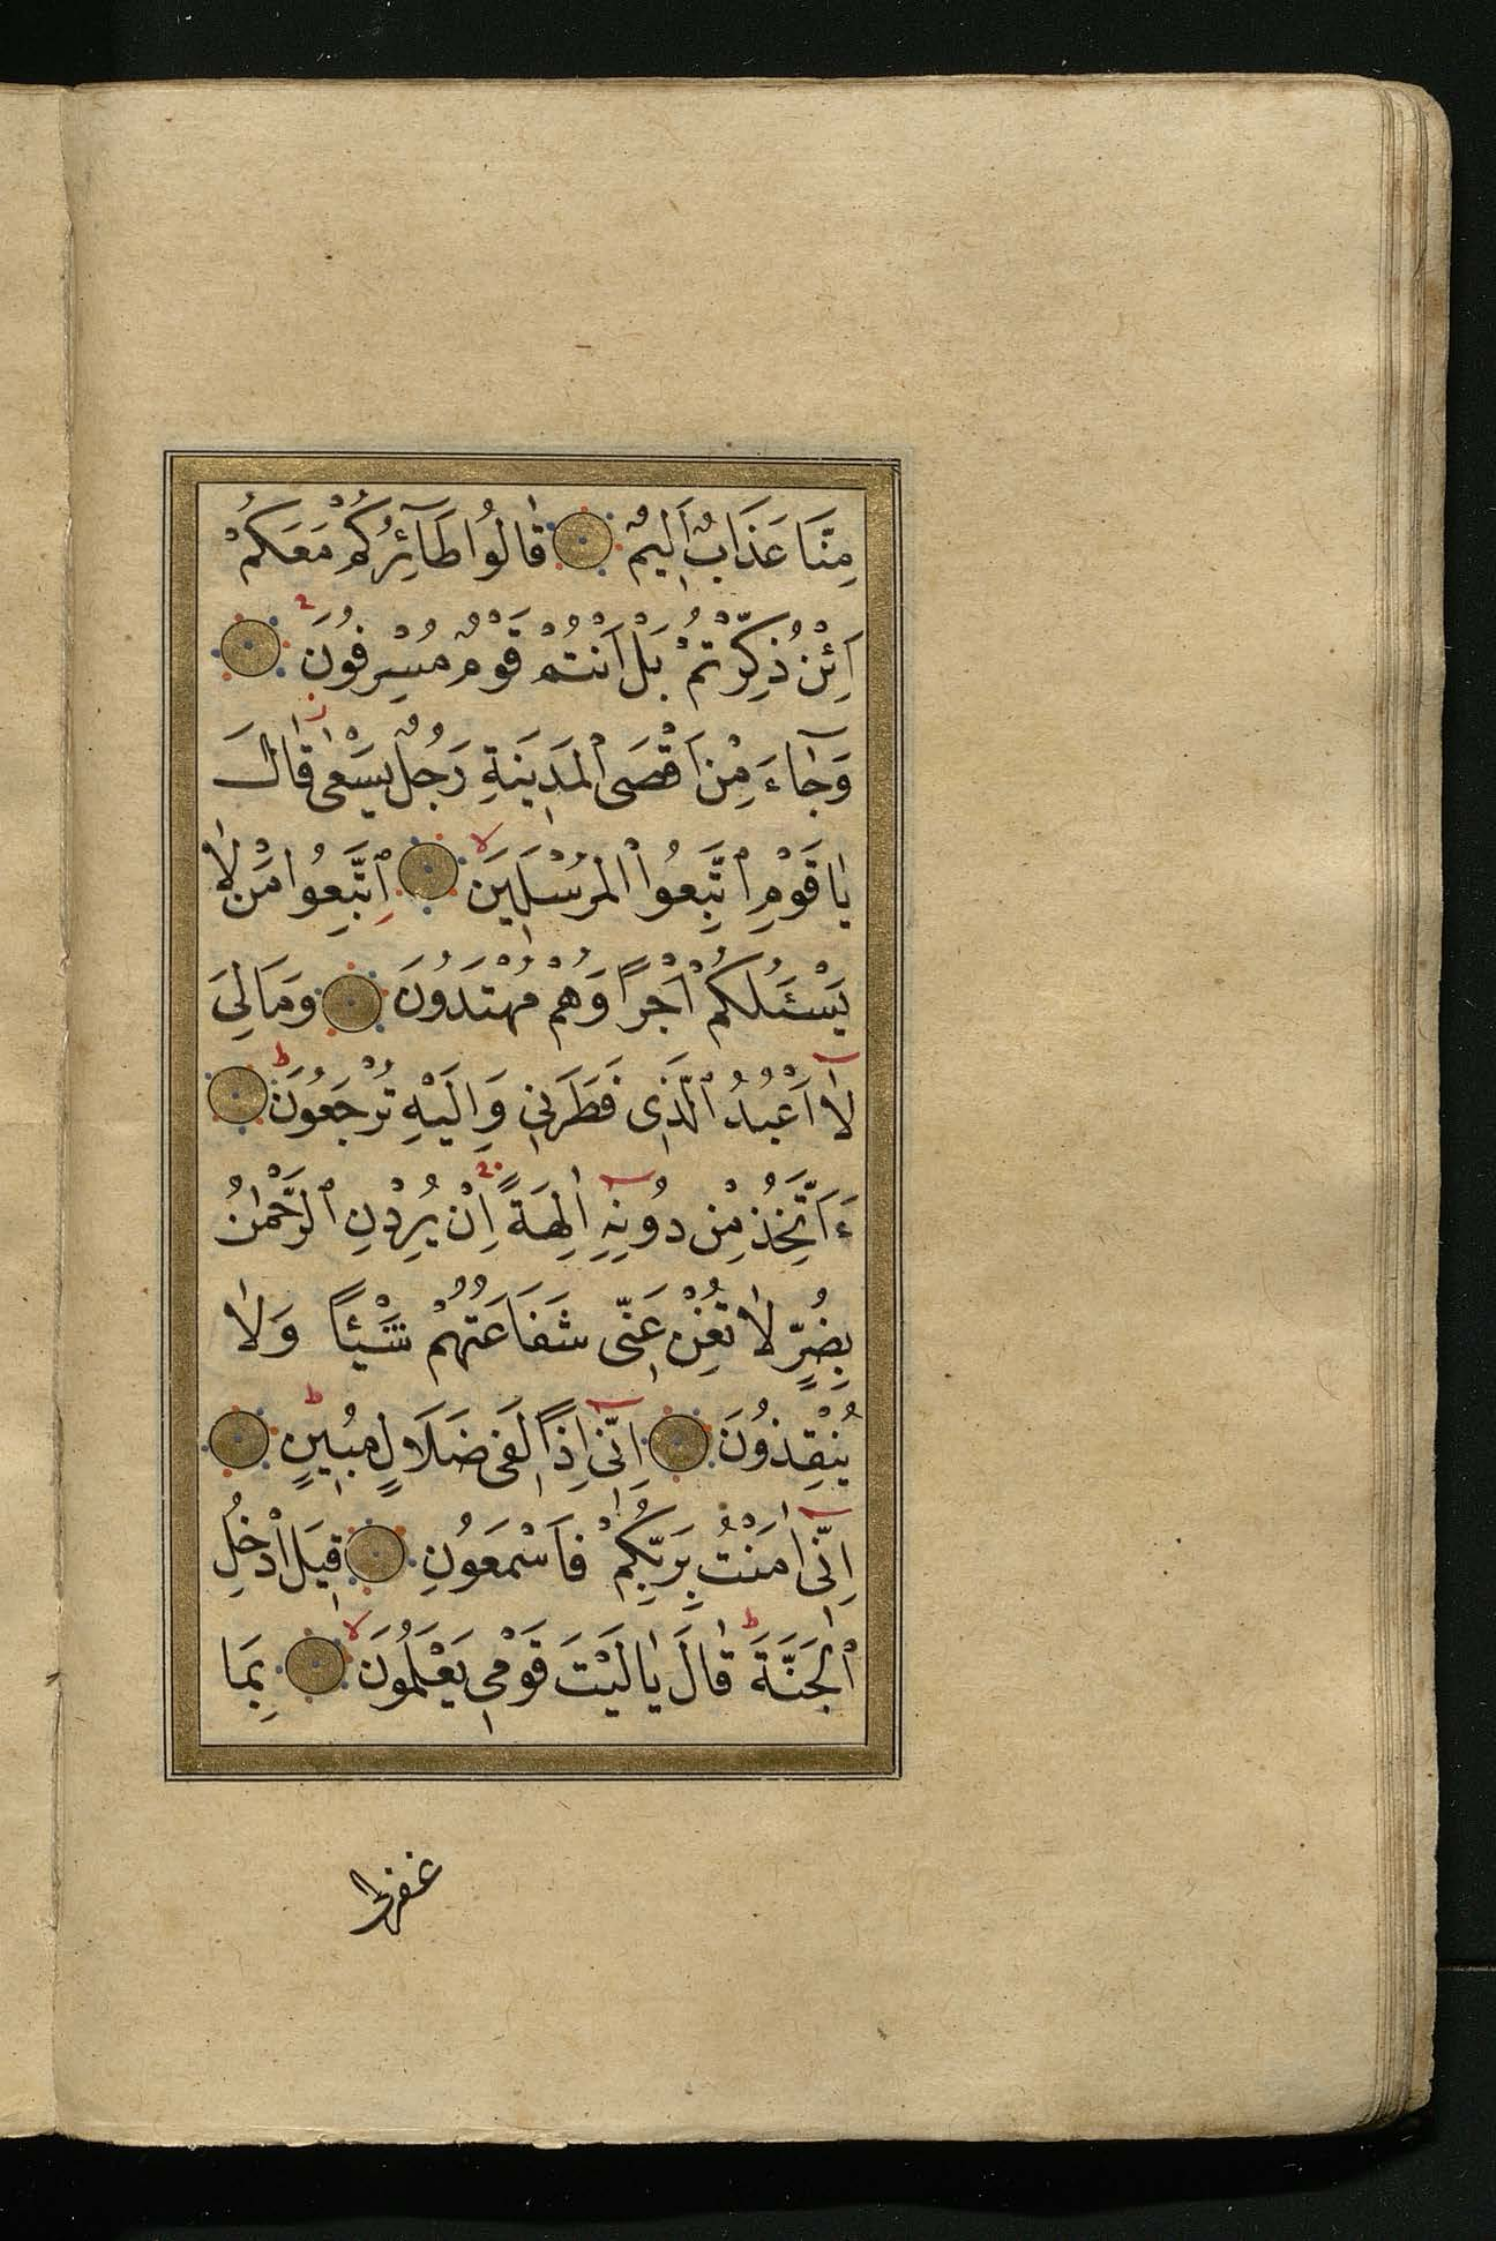 مِنَّا عَذَابٌ اَلِيمٌ قَالُوا طَآئِرُكُمْ مَعَكُمْ
اَئِنْ ذُكِّرْتُمْ بَلْ اَنْتُمْ قَوْمٌ مُسْرِفُونَ
وَجَآءَ مِنْ اَقْصَى الْمَدِينَةِ رَجُلٌ يَسْعٰى قَالَ
يَا قَوْمِ اتَّبِعُوا الْمُرْسَلِينَ اِتَّبِعُوا مَنْ لَا
يَسْئَلُكُمْ اَجْرًا وَهُمْ مُهْتَدُونَ وَمَا لِيَ
لَآ اَعْبُدُ الَّذِى فَطَرَنِى وَاِلَيْهِ تُرْجَعُونَ
ءَاَتَّخِذُ مِنْ دُونِهِ اٰلِهَةً اِنْ يُرِدْنِ الرَّحْمٰنُ
بِضُرٍّ لَا تُغْنِ عَنِّى شَفَاعَتُهُمْ شَيْئًا وَلَا
يُنْقِذُونَ اِنِّى اِذًا لَفِى ضَلَالٍ مُبِينٍ
اِنِّى اٰمَنْتُ بِرَبِّكُمْ فَاسْمَعُونِ قِيلَ ادْخُلِ
الْجَنَّةَ قَالَ يَا لَيْتَ قَوْمِى يَعْلَمُونَ بِمَا
غفرلى